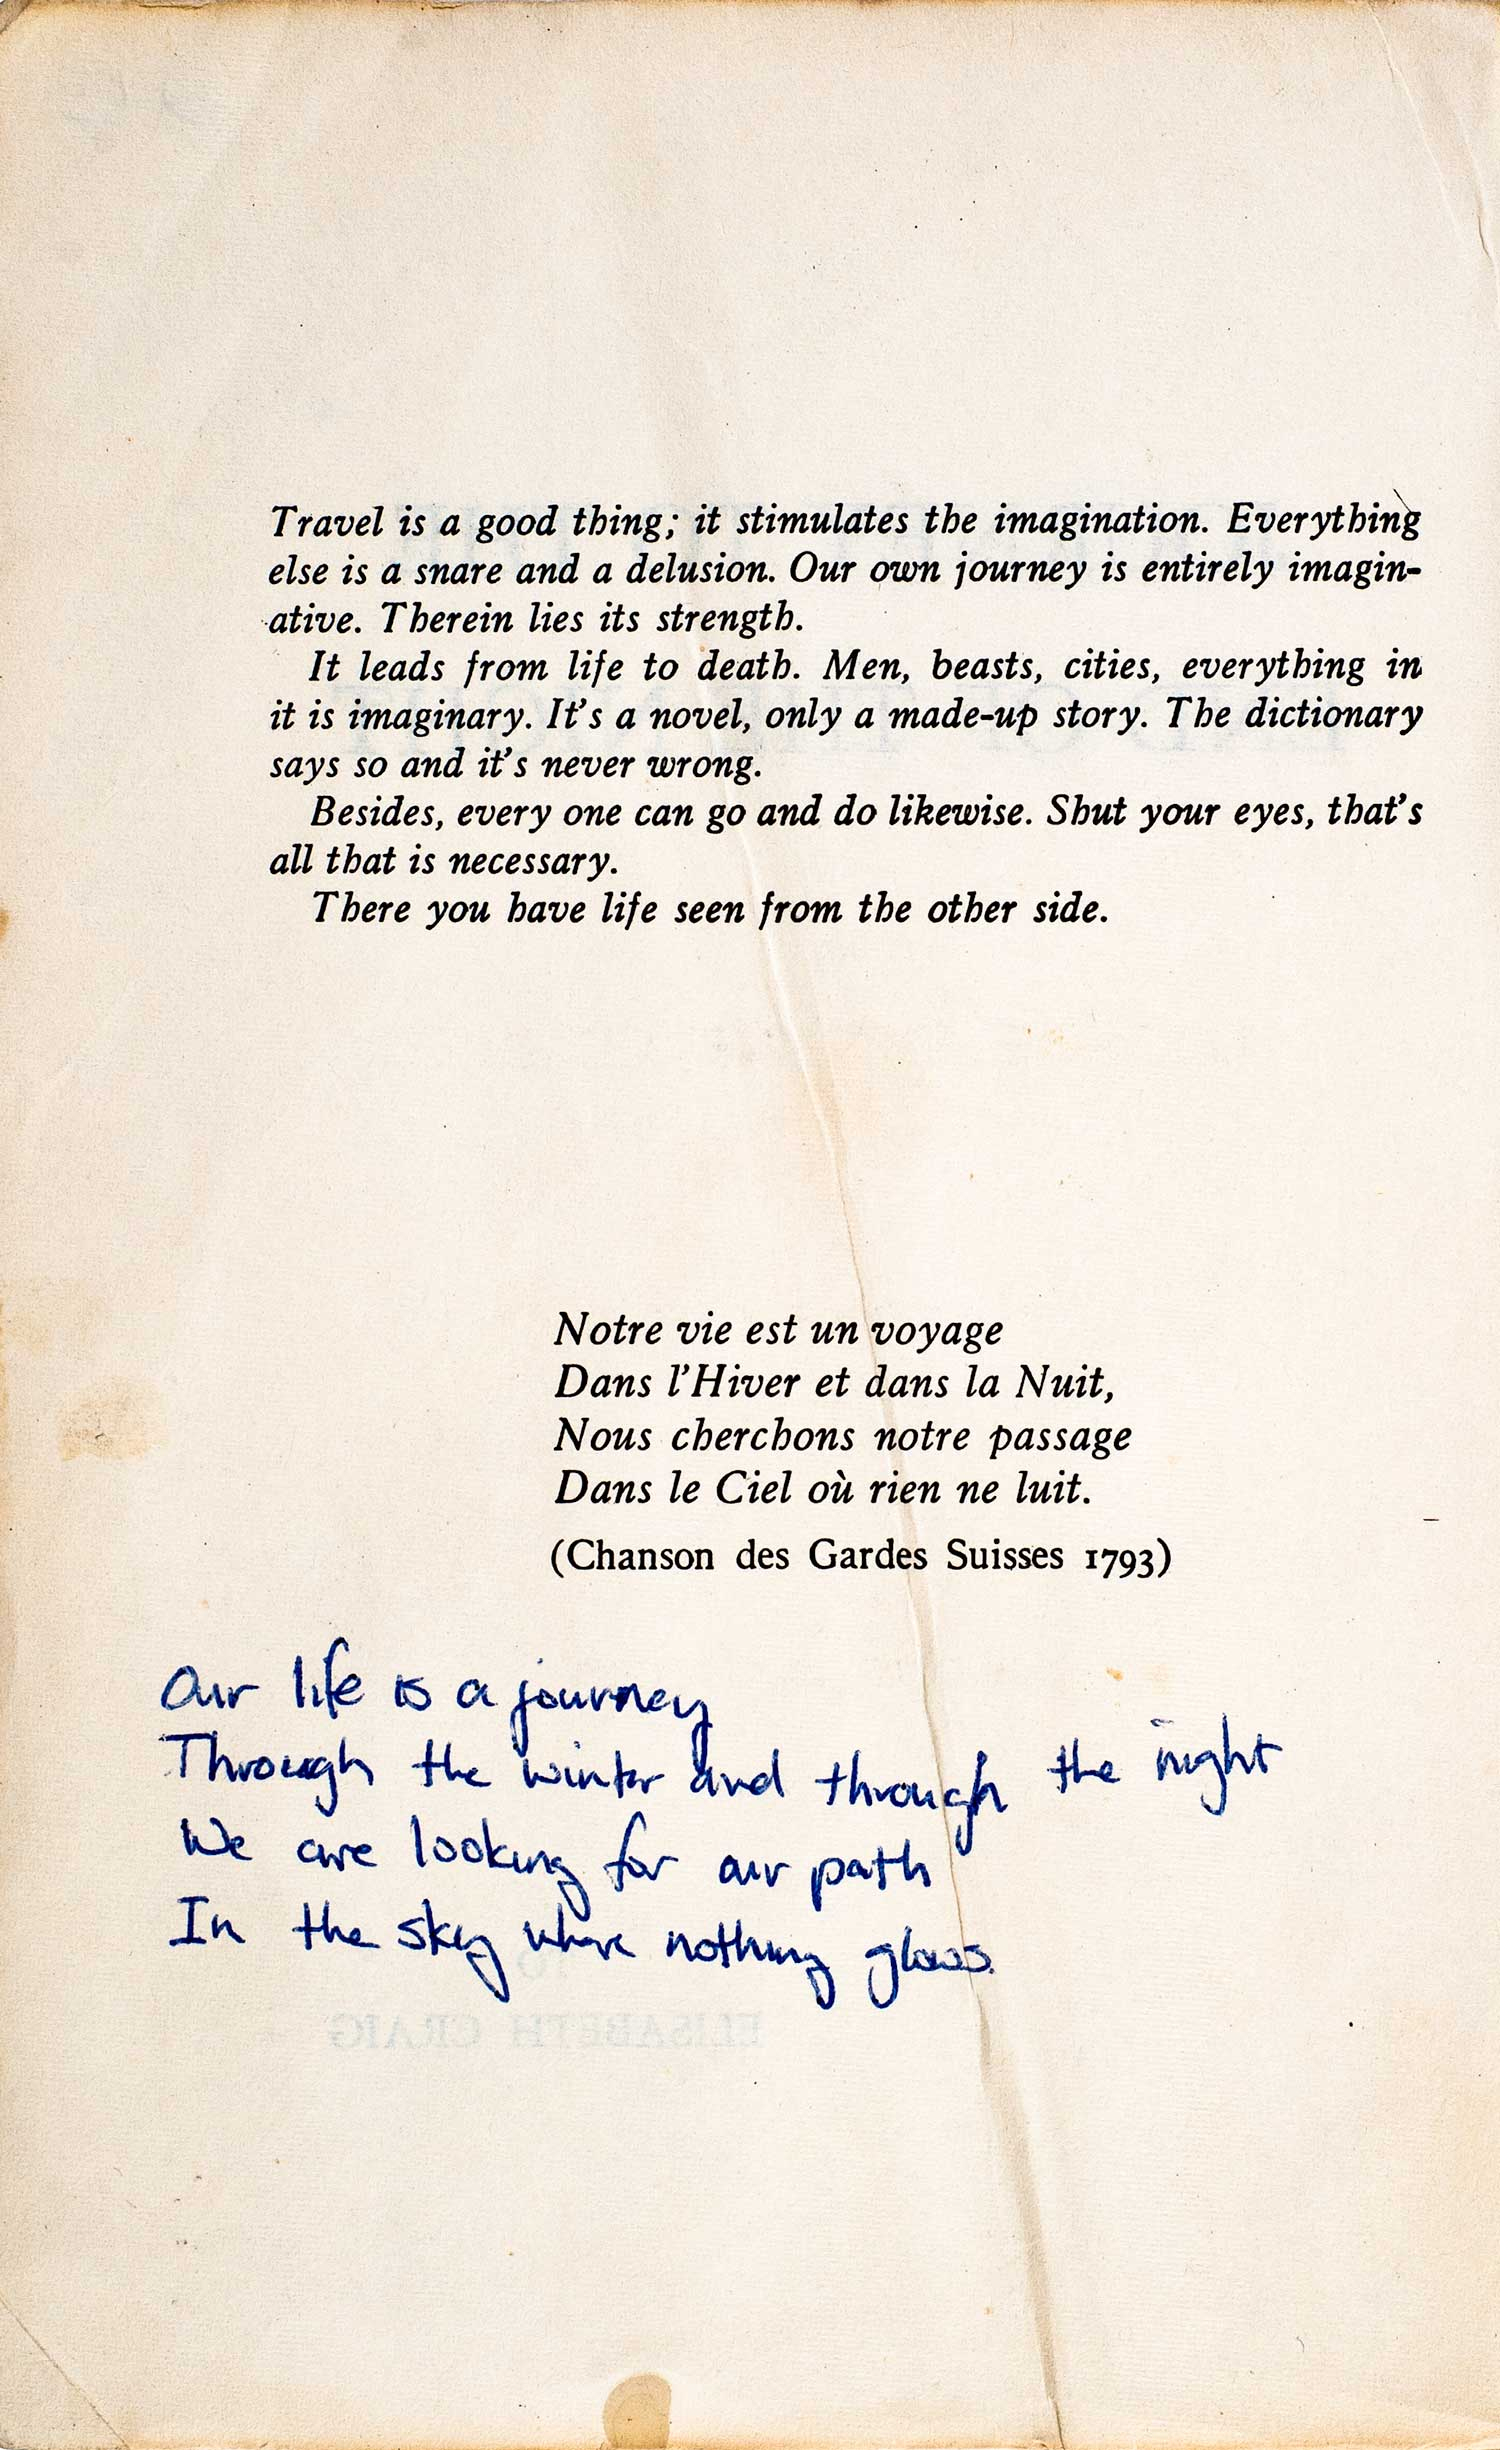 Travel is a good thing; it stimulates the imagination. Everything
else is a snare and a delusion. Our own journey is entirely imagin-
ative. Therein lies its strength.
It leads from life to death. Men, beasts, cities, everything in
it is imaginary. It's a novel, only a made-up story. The dictionary
says so and it's never wrong.
Besides, every one can go and do likewise. Shut your eyes, that's
all that is necessary.
There you have life seen from the other side.
Notre vie est un voyage
Dans l'Hiver et dans la Nuit,
Nous cherchons notre passage
Dans le Ciel où rien ne luit.
(Chanson des Gardes Suisses 1793)
Our life is a journey
Through the winter and through the night
We are looking for our path
In the sky where nothing glows.
ELISABETH CRAIG